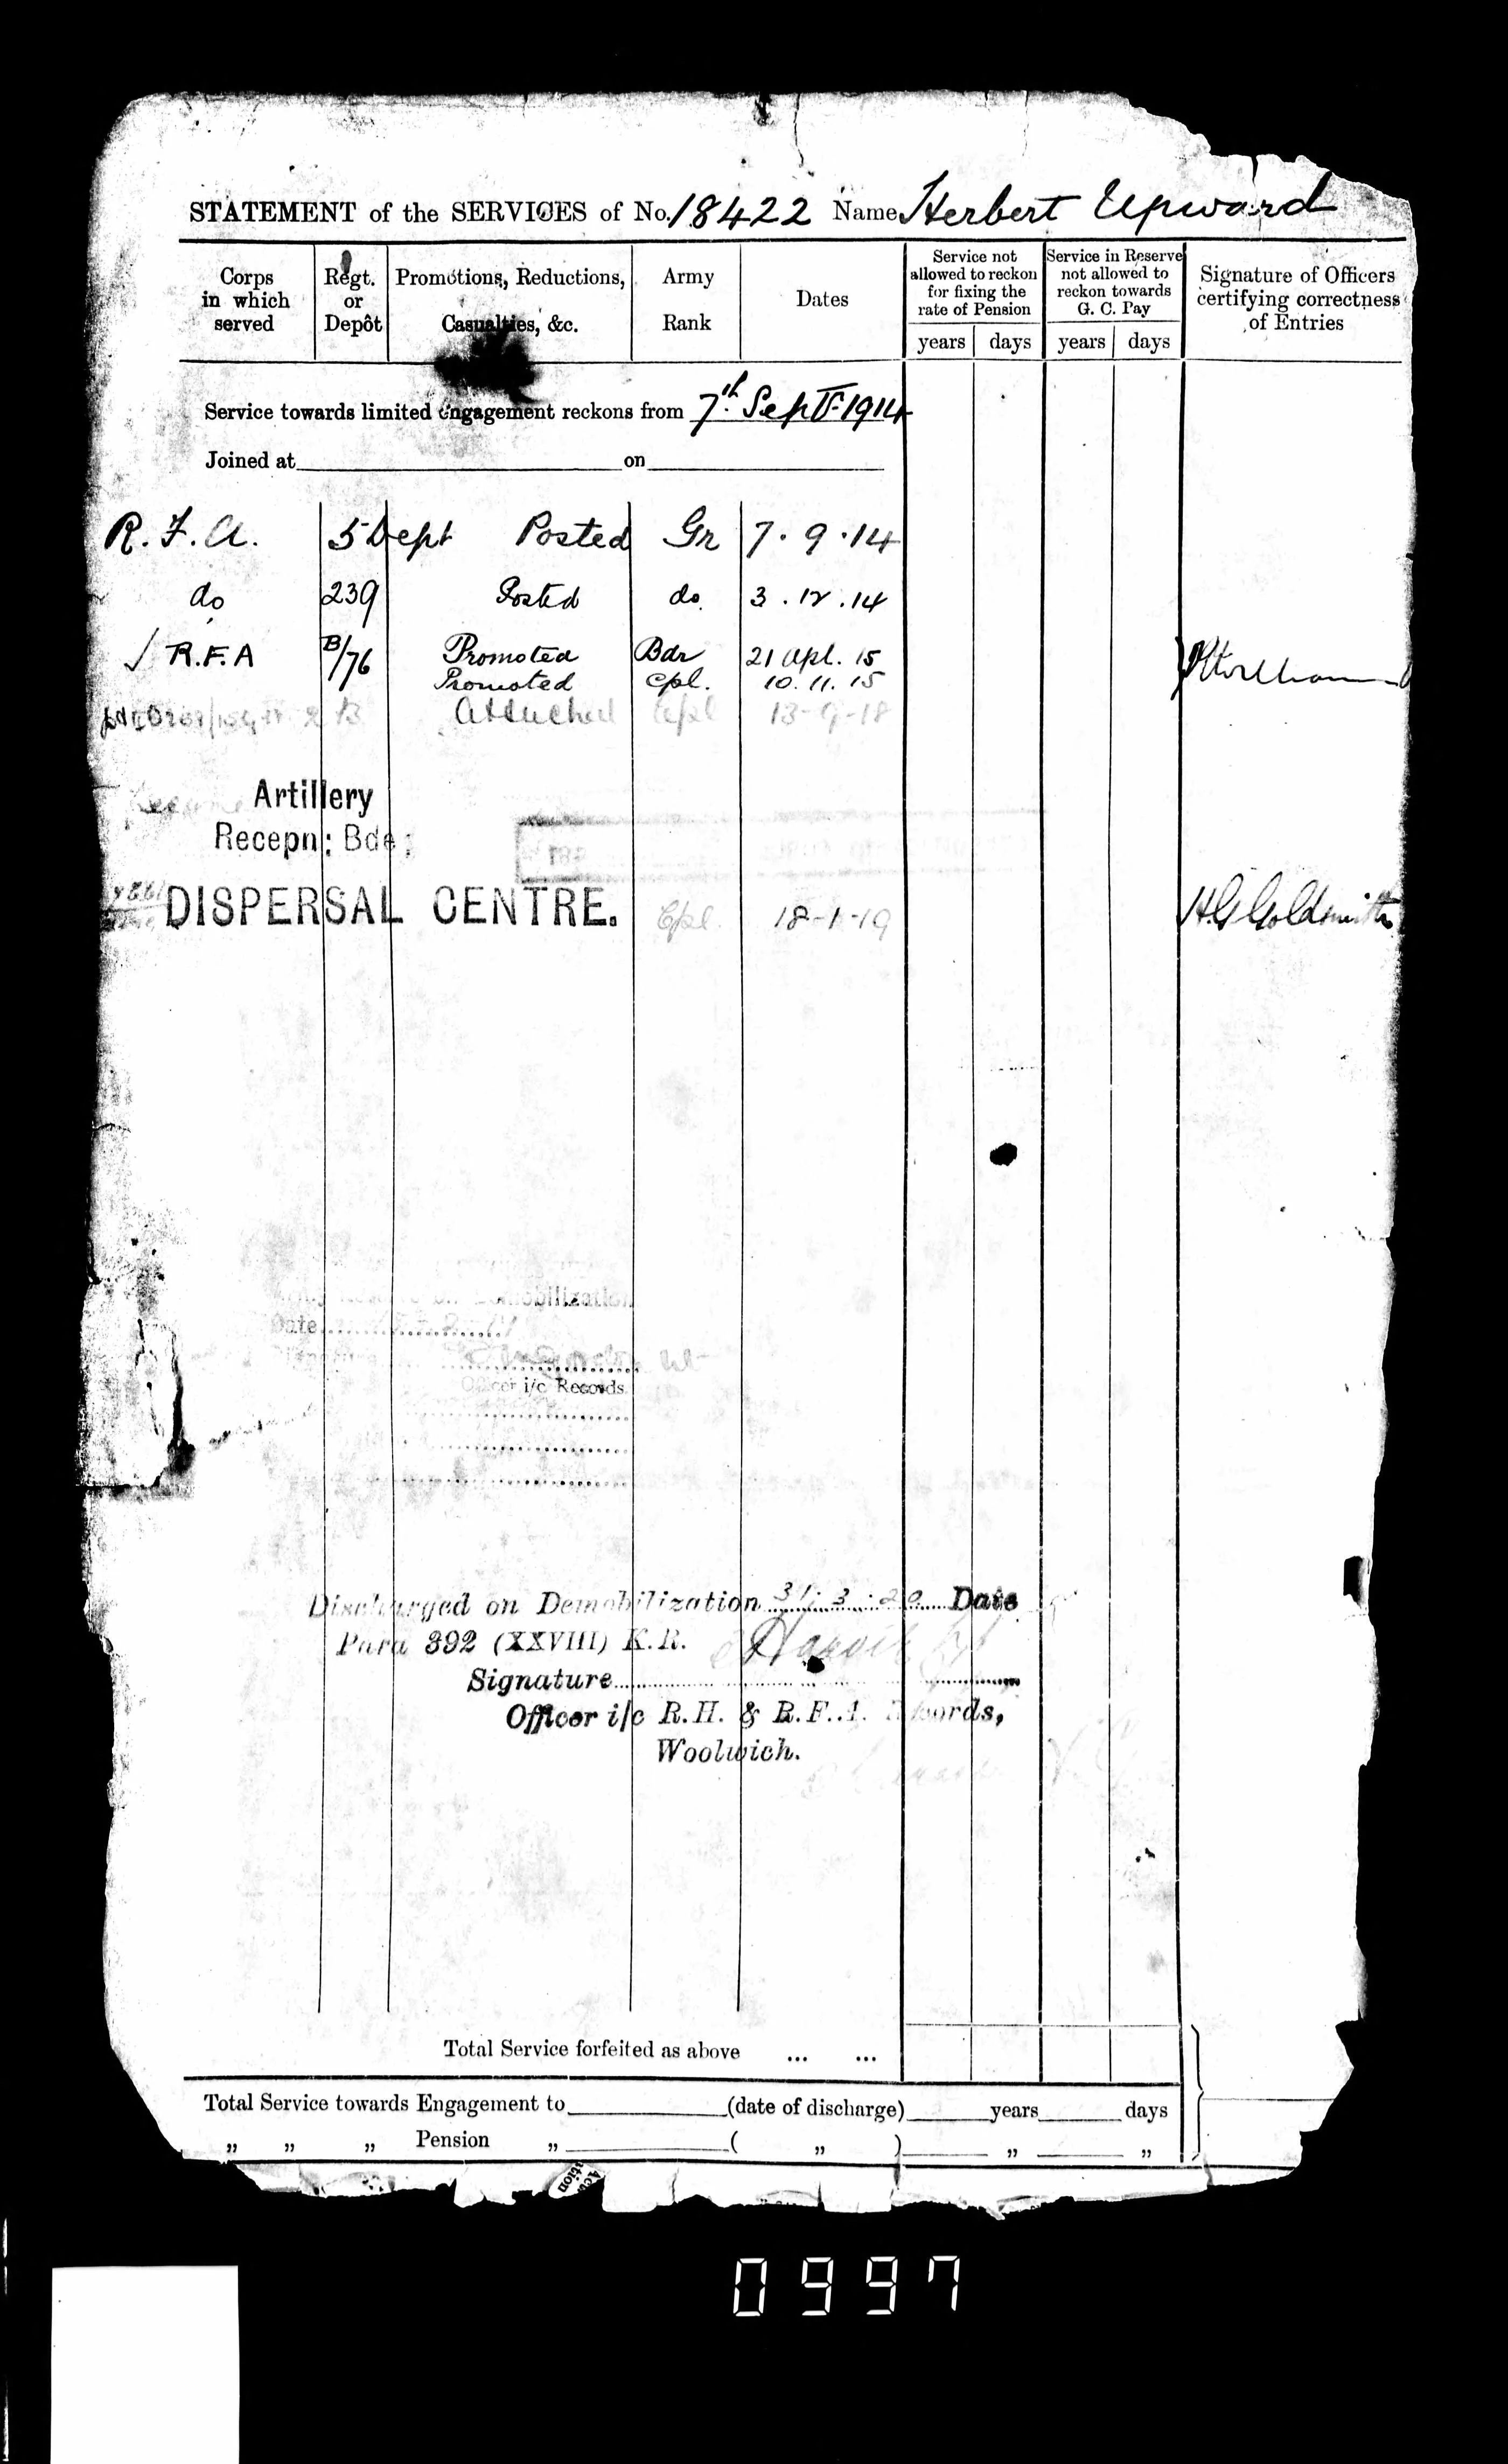 STATEMENT of the SERVICES of No. 18422 Name Herbert Upward
Corps in which served
Regt. or Depôt
Promotions, Reductions, Casualties, &c.
Army Rank
Dates
Service not allowed to reckon for fixing the rate of Pension
years days
Service in Reserve not allowed to reckon towards G. C. Pay
years days
Signature of Officers certifying correctness of Entries
Service towards limited engagement reckons from 7th Sept 1914
Joined at on
R.F.A. 5 Dept Posted Gr 7.9.14
do 239 Posted do. 3.12.14
R.F.A B/76 Promoted Bdr 21 Apl. 15
Promoted Cpl. 10.11.15
Attached Cpl 13-9-18
Artillery
Recepn: Bde;
DISPERSAL CENTRE. Cpl. 18-1-19 H.G. Goldsmith
Demobilization
Date
Officer i/c Records
Discharged on Demobilization 31.3.20 Date
Para 392 (XXVIII) K.R.
Signature
Officer i/c R.H. & R.F.A. Records,
Woolwich.
Total Service forfeited as above ... ...
Total Service towards Engagement to (date of discharge) years days
„ „ „ Pension „ ( „ ) „ „
0997